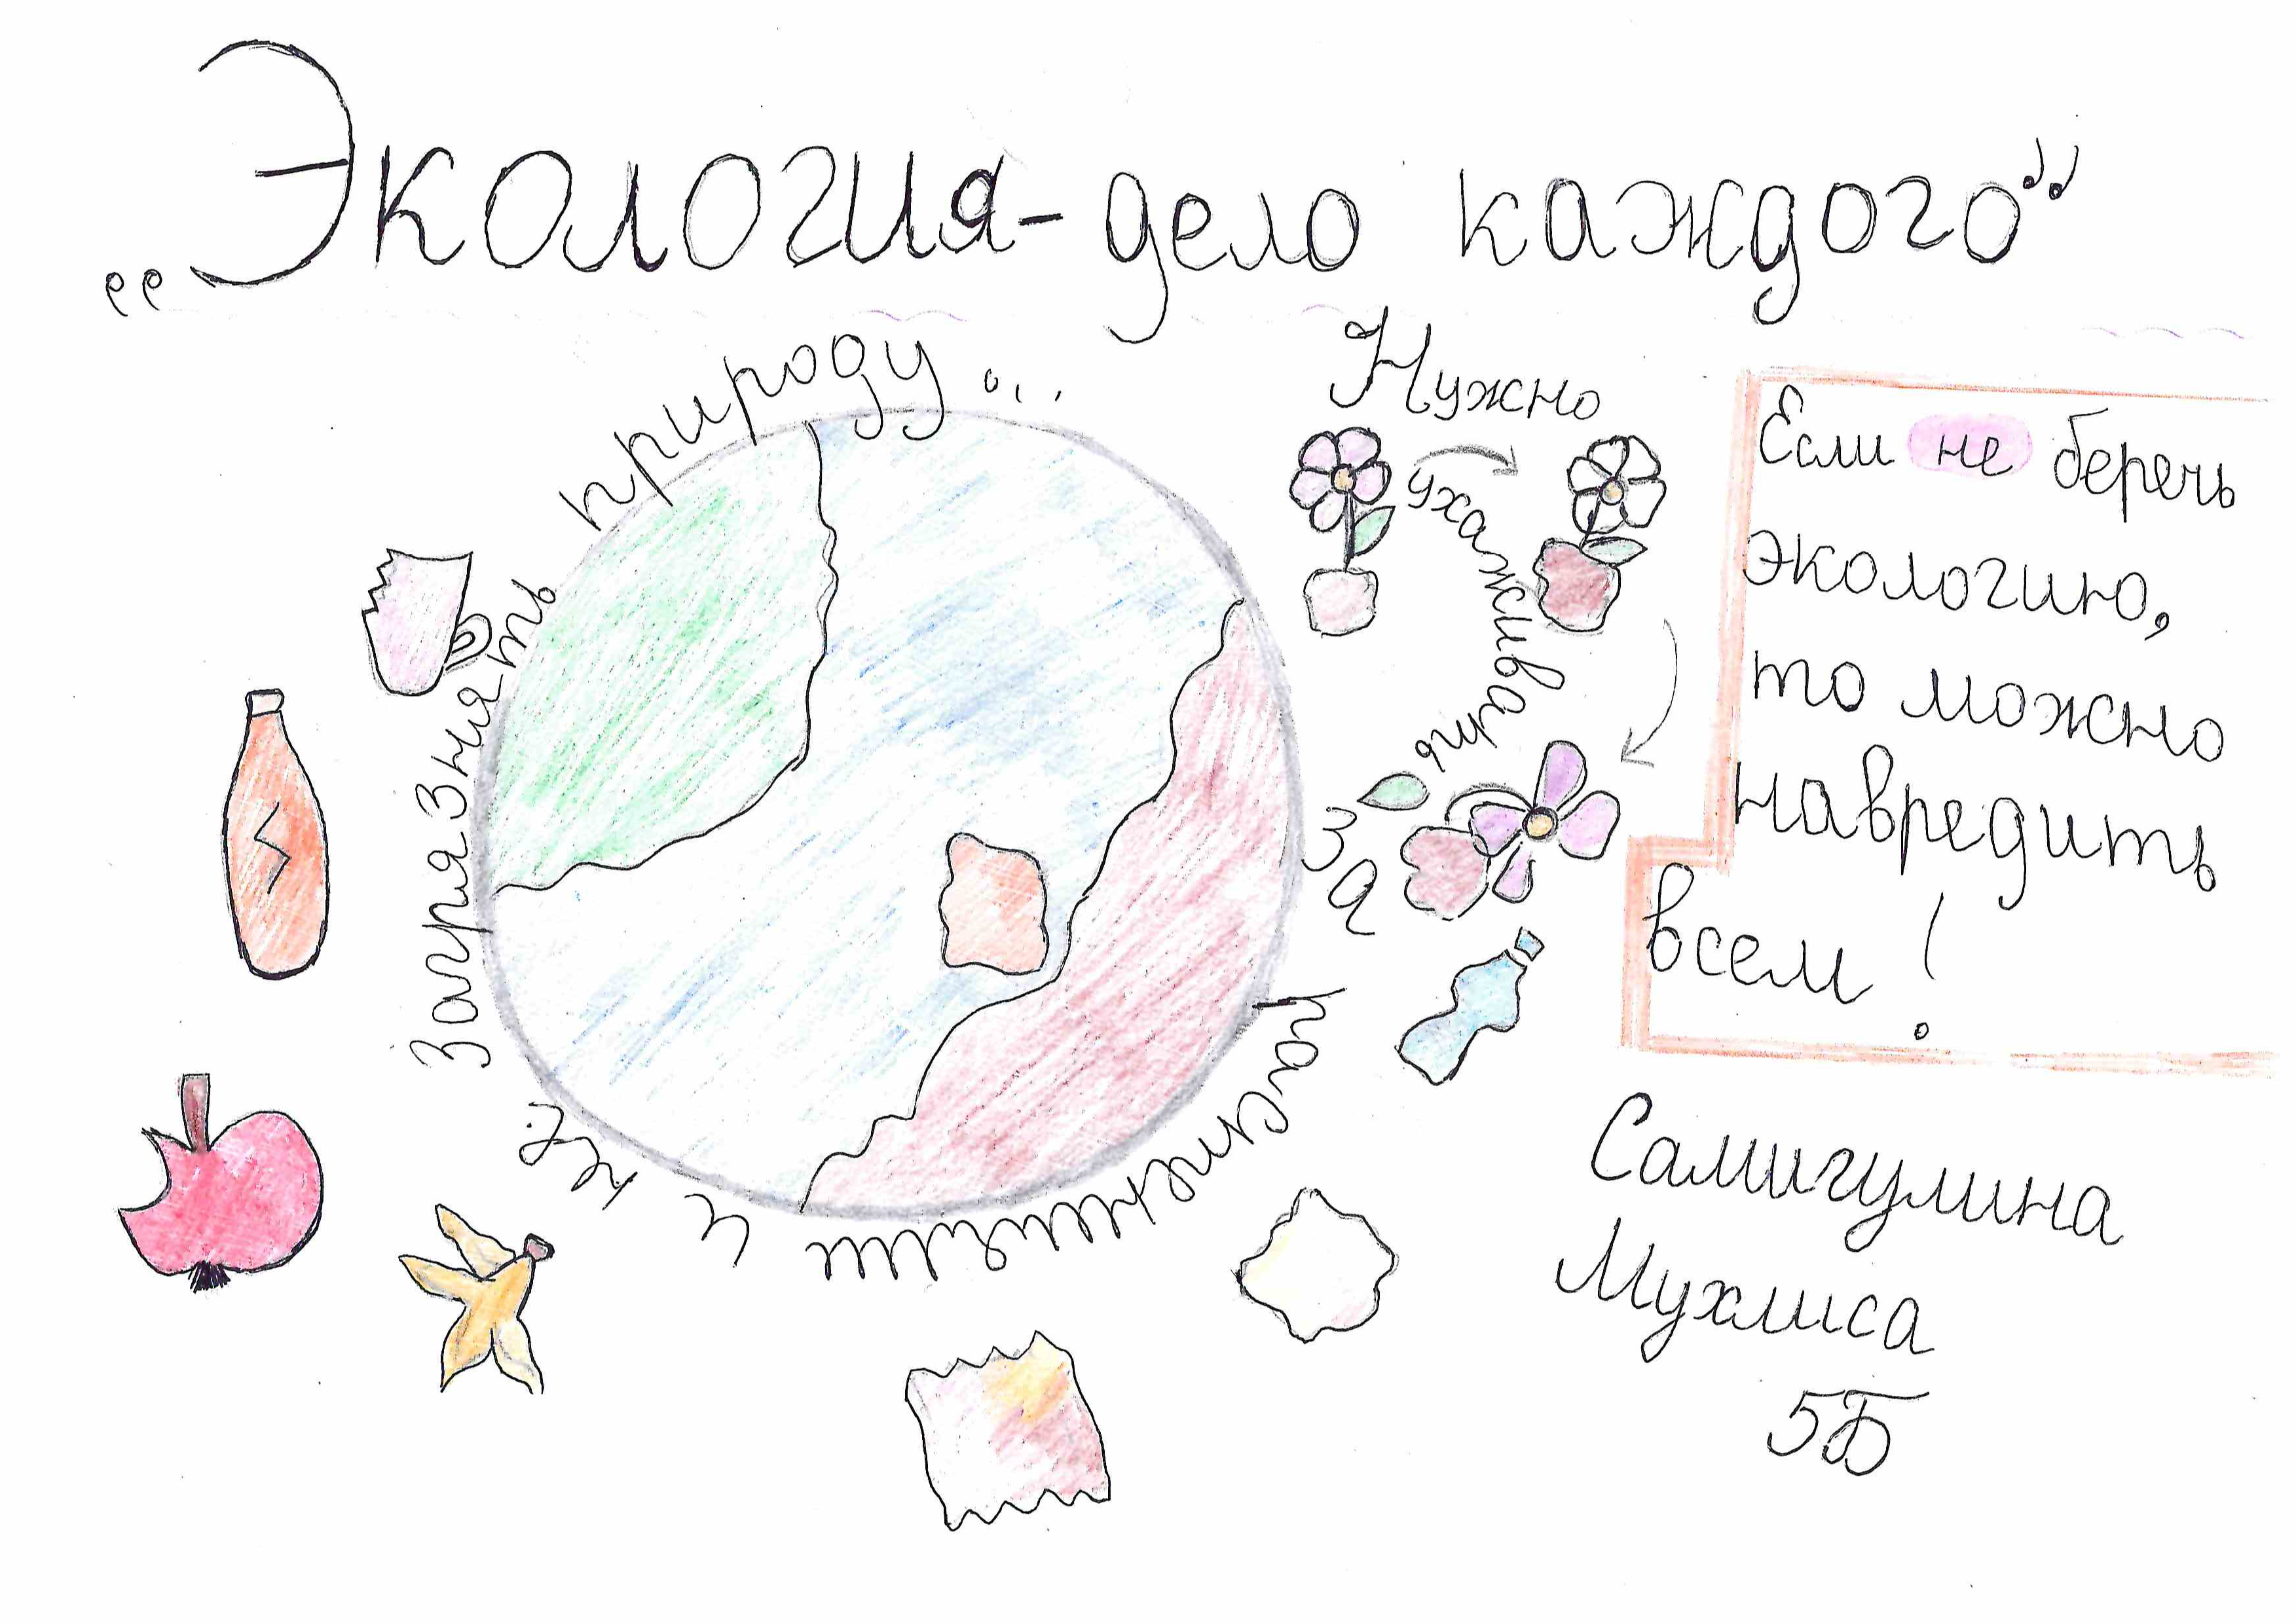 „Экология- дело каждого"
Нужно
ухаживать
за
растениями
и не
загрязнять
природу...
Если не беречь
экологию,
то можно
навредить
всем!
Самигулина
Мухлиса
5Б